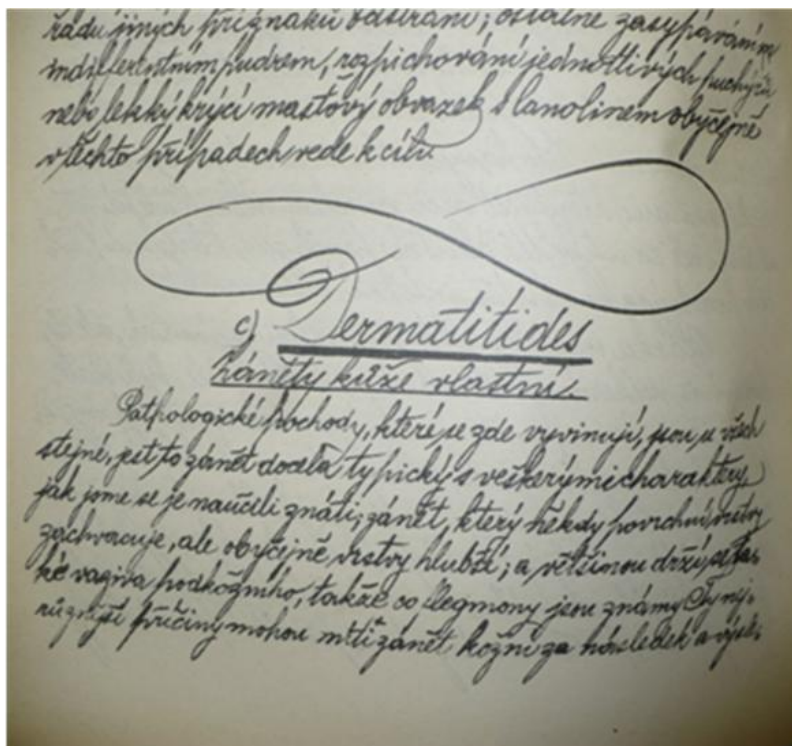 řadu jiných příznaků odstraní; ostatně zasypáváním
indifferentním pudrem, rozpichování jednotlivých puchýřů
nebo lehký krycí masťový obvazek s lanolinem obyčejně
v těchto případech vede k cíli.
c) Dermatitides
Záněty kůže vlastní.
Pathologické pochody, které se zde vyvinují, jsou u všech
stejné, jest to zánět docela typický s veškerými charaktery,
jak jsme se je naučili znáti; zánět, který někdy povrchní vrstvy
zachvacuje, ale obyčejně vrstvy hlubší; a většinou drží se ta-
ké vaziva podkožního, takže co flegmony jsou známy. Ty nej-
různější příčiny mohou míti zánět kožní za následek a